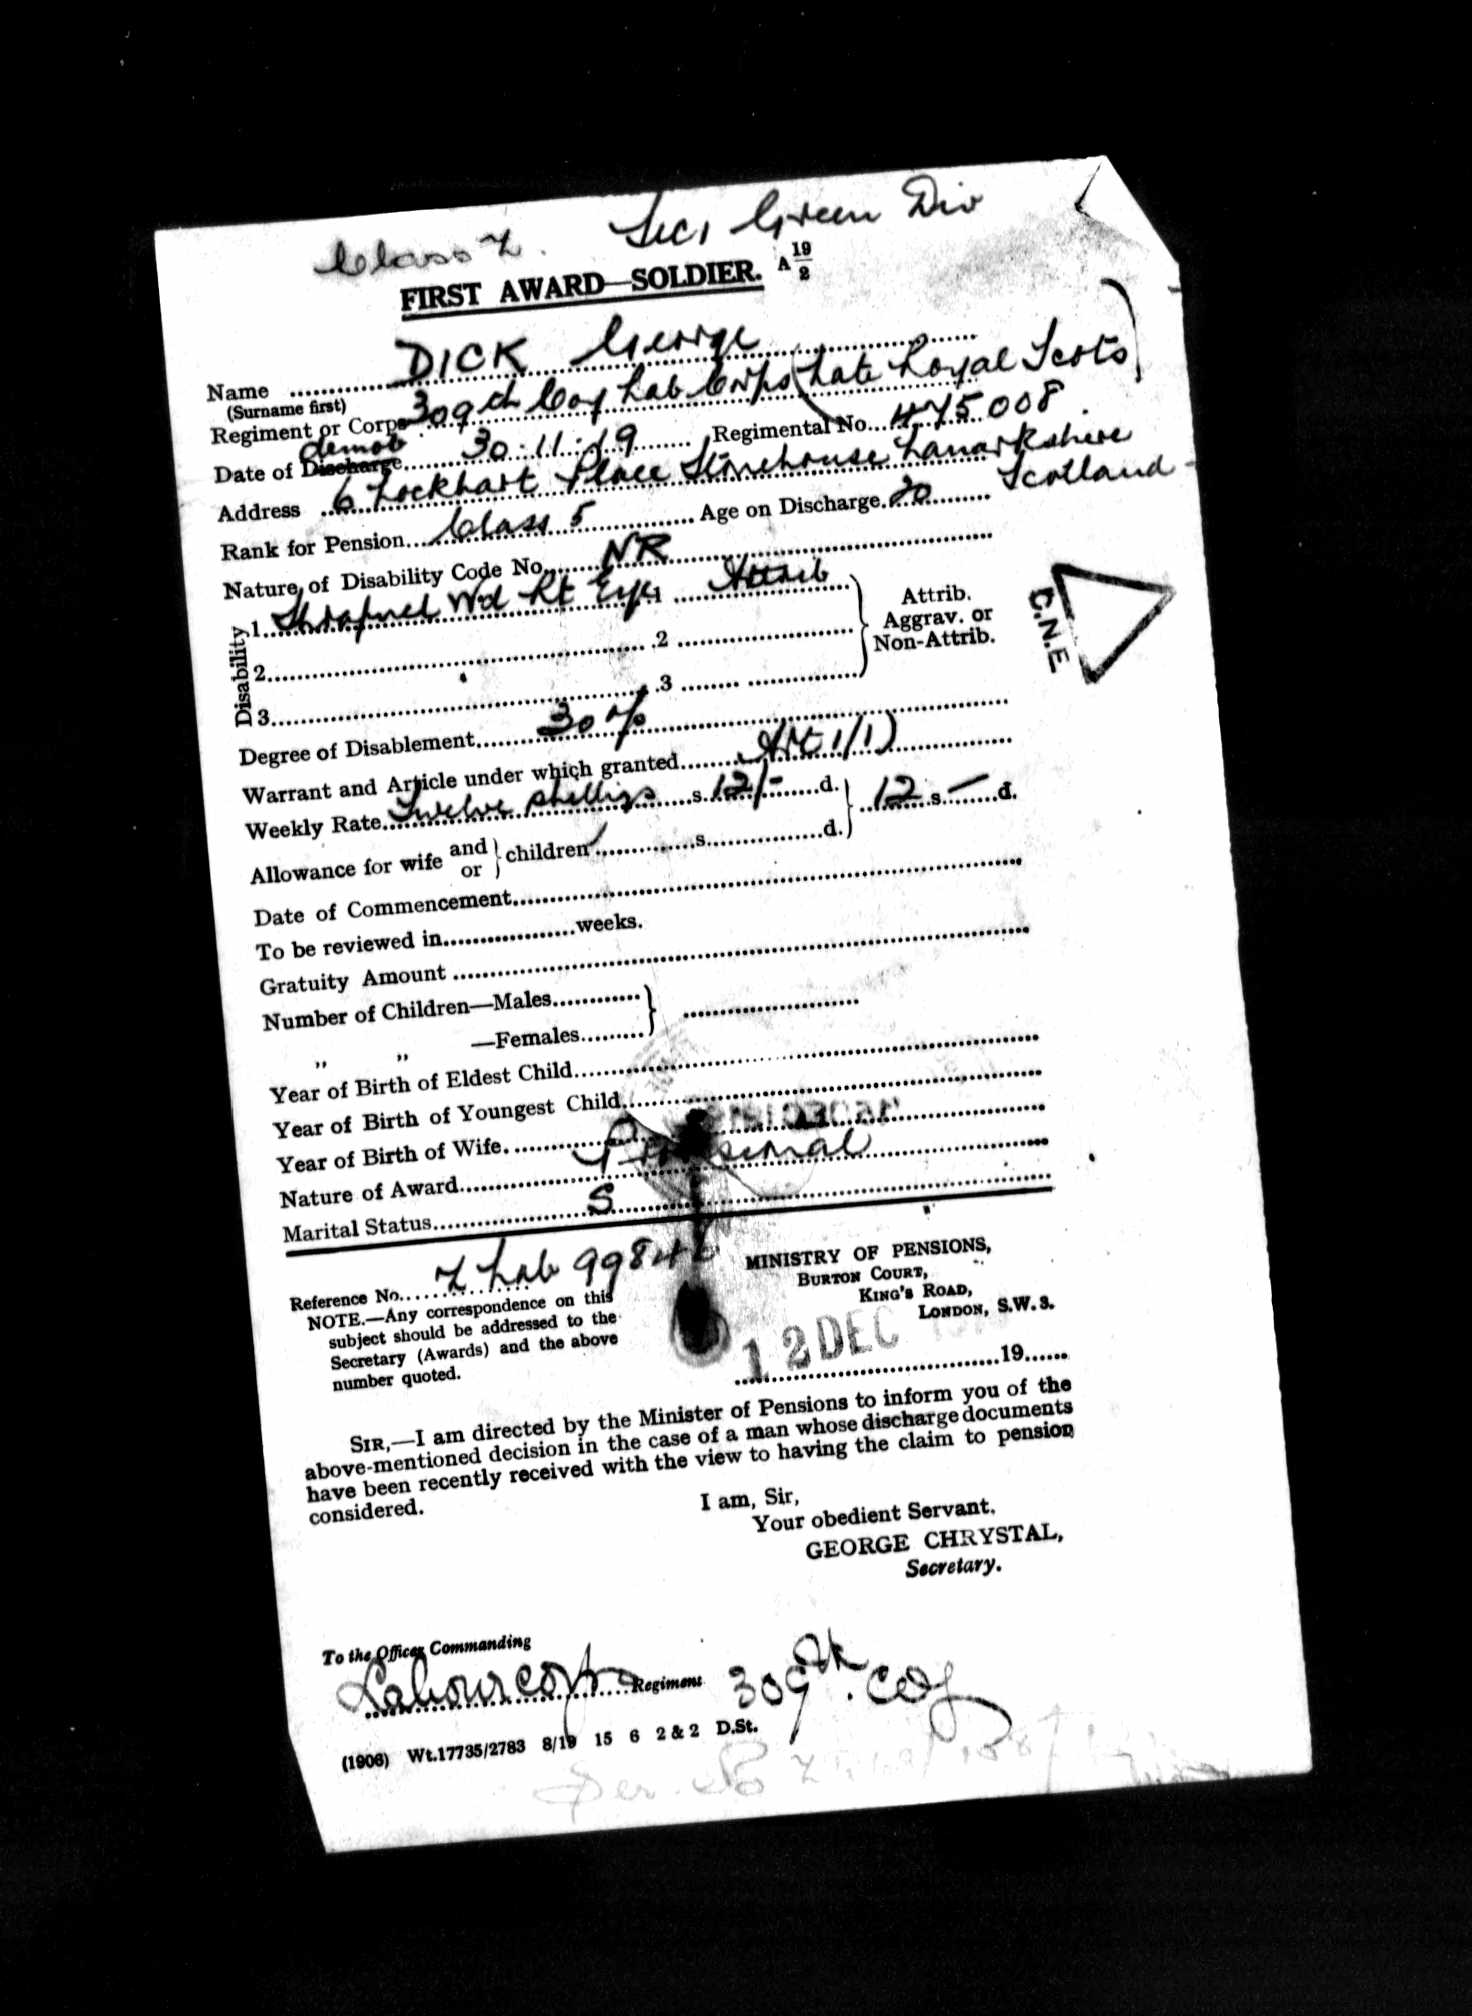 Class Z. Sec 1 Green Div
FIRST AWARD—SOLDIER. A 19/2
Name DICK George
(Surname first)
Regiment or Corps 309th Coy Lab Corps (Late Royal Scots)
Date of Discharge demob 30.11.19 Regimental No. 475008.
Address 6 Lockhart Place Stonehouse Lanarkshire
Scotland
Rank for Pension Class 5 Age on Discharge 20
Nature of Disability Code No. NR
Disability
1 Shrapnel Wd Rt Eye 1 Attrib
2 2
3 3
Attrib.
Aggrav. or
Non-Attrib.
C.N.E
Degree of Disablement 30%
Warrant and Article under which granted Art 1/1)
Weekly Rate Twelve shillings s. 12/- d. } 12 s. — d.
Allowance for wife and or } children s. d.
Date of Commencement
To be reviewed in weeks.
Gratuity Amount
Number of Children—Males
„ „ —Females
Year of Birth of Eldest Child
Year of Birth of Youngest Child
Year of Birth of Wife
Nature of Award
Marital Status S
Reference No. Z Lab 9984
NOTE.—Any correspondence on this
subject should be addressed to the
Secretary (Awards) and the above
number quoted.
MINISTRY OF PENSIONS,
BURTON COURT,
KING'S ROAD,
LONDON, S.W.3.
12 DEC
19
SIR,—I am directed by the Minister of Pensions to inform you of the
above-mentioned decision in the case of a man whose discharge documents
have been recently received with the view to having the claim to pension
considered.
I am, Sir,
Your obedient Servant,
GEORGE CHRYSTAL,
Secretary.
To the Officer Commanding
Labour Corps Regiment 309th. Coy
(1906) Wt.17735/2783 8/19 15 6 2 & 2 D.St.